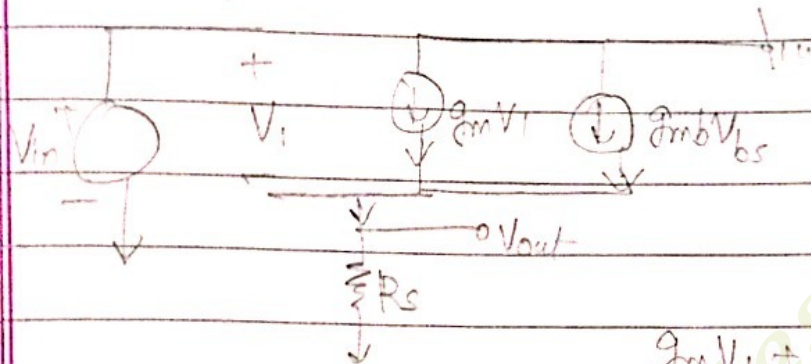 +
Vin V1 gmV1 gmbVbs
-
Vout
Rs
gmV1 +